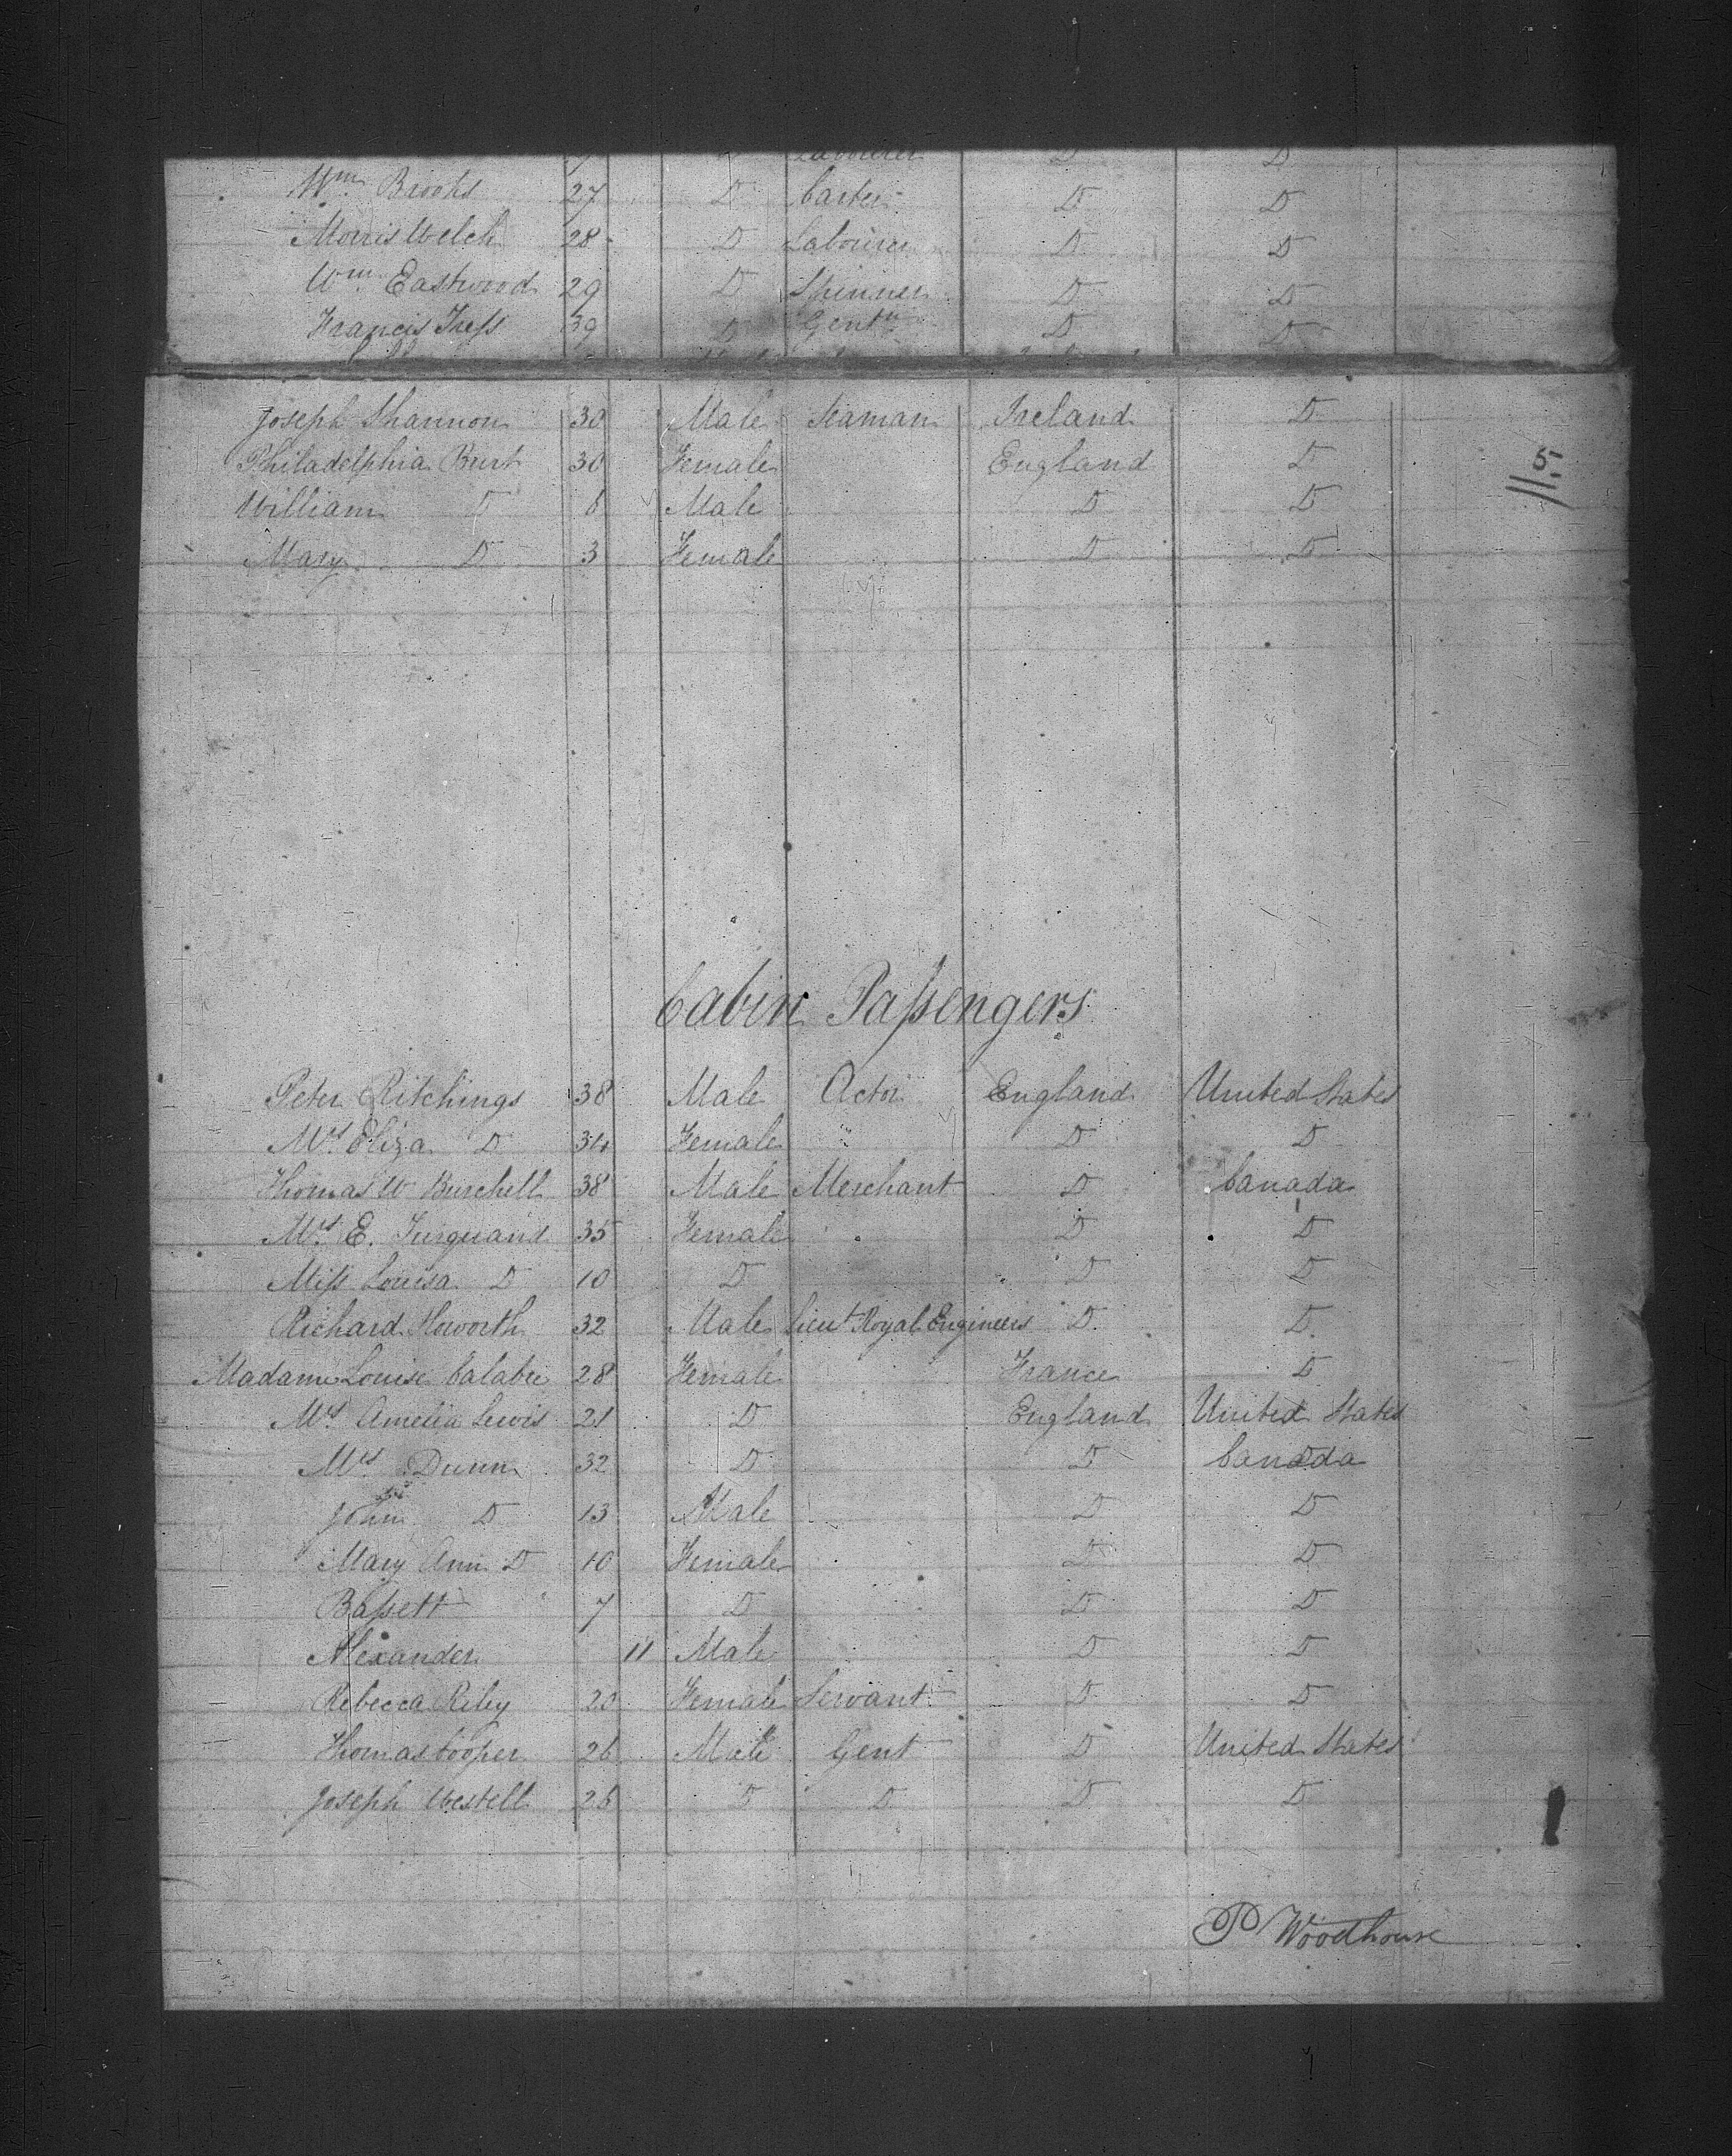 Labourer D D
Wm Brooks 27 D Carter D D
Morris Welch 28 D Labourer D D
Wm Eastwood 29 D Spinner D D
Francis Tress 39 D Gentn D D
Joseph Shannon 30 Male Seaman Ireland D
Philadelphia Burt 30 Female England D
William D 6 Male D D
Mary D 3 Female D D
115
Cabin Passengers
Peter Ritchings 38 Male Actor England United States
Mrs Eliza D 34 Female " D D
Thomas W Burchell 38 Male Merchant D Canada
Mrs E. Turquand 35 Female D D
Miss Louisa D 10 D D D
Richard Howorth 32 Male Lieut Royal Engineers D D
Madame Louise 28 Female France D
Mrs Amelia Lewis 21 D England United States
Mrs Dunn 32 D D Canada
John D 13 Male D D
Mary Ann D 10 Female D D
Bassett 7 D D D
Alexander 11 Male D D
Rebecca Riley 20 Female Servant D D
Thomas Cooper 26 Male Gent D United States
Joseph Westell 26 D D D D
P Woodhouse